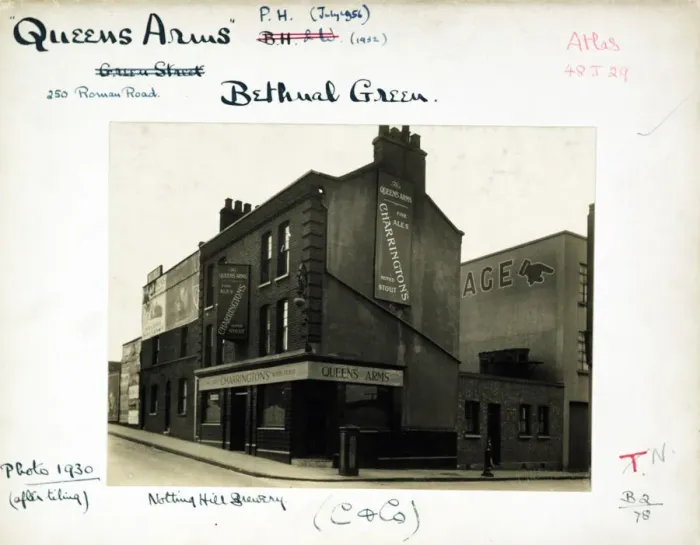 "Queens Arms" P.H. (July 1956)
B.H. & W. (1952)
Atlas
48 J 29
Green Street
250 Roman Road.
Bethnal Green.
The
QUEENS ARMS
FINE
ALES
CHARRINGTON'S
STOUT
AGE
The
QUEENS ARMS
FINE
ALES
CHARRINGTON'S
STOUT
CHARRINGTON'S
QUEENS ARMS
Photo 1930
(after tiling)
Notting Hill Brewery.
(C & Co)
T.N.
B2
78